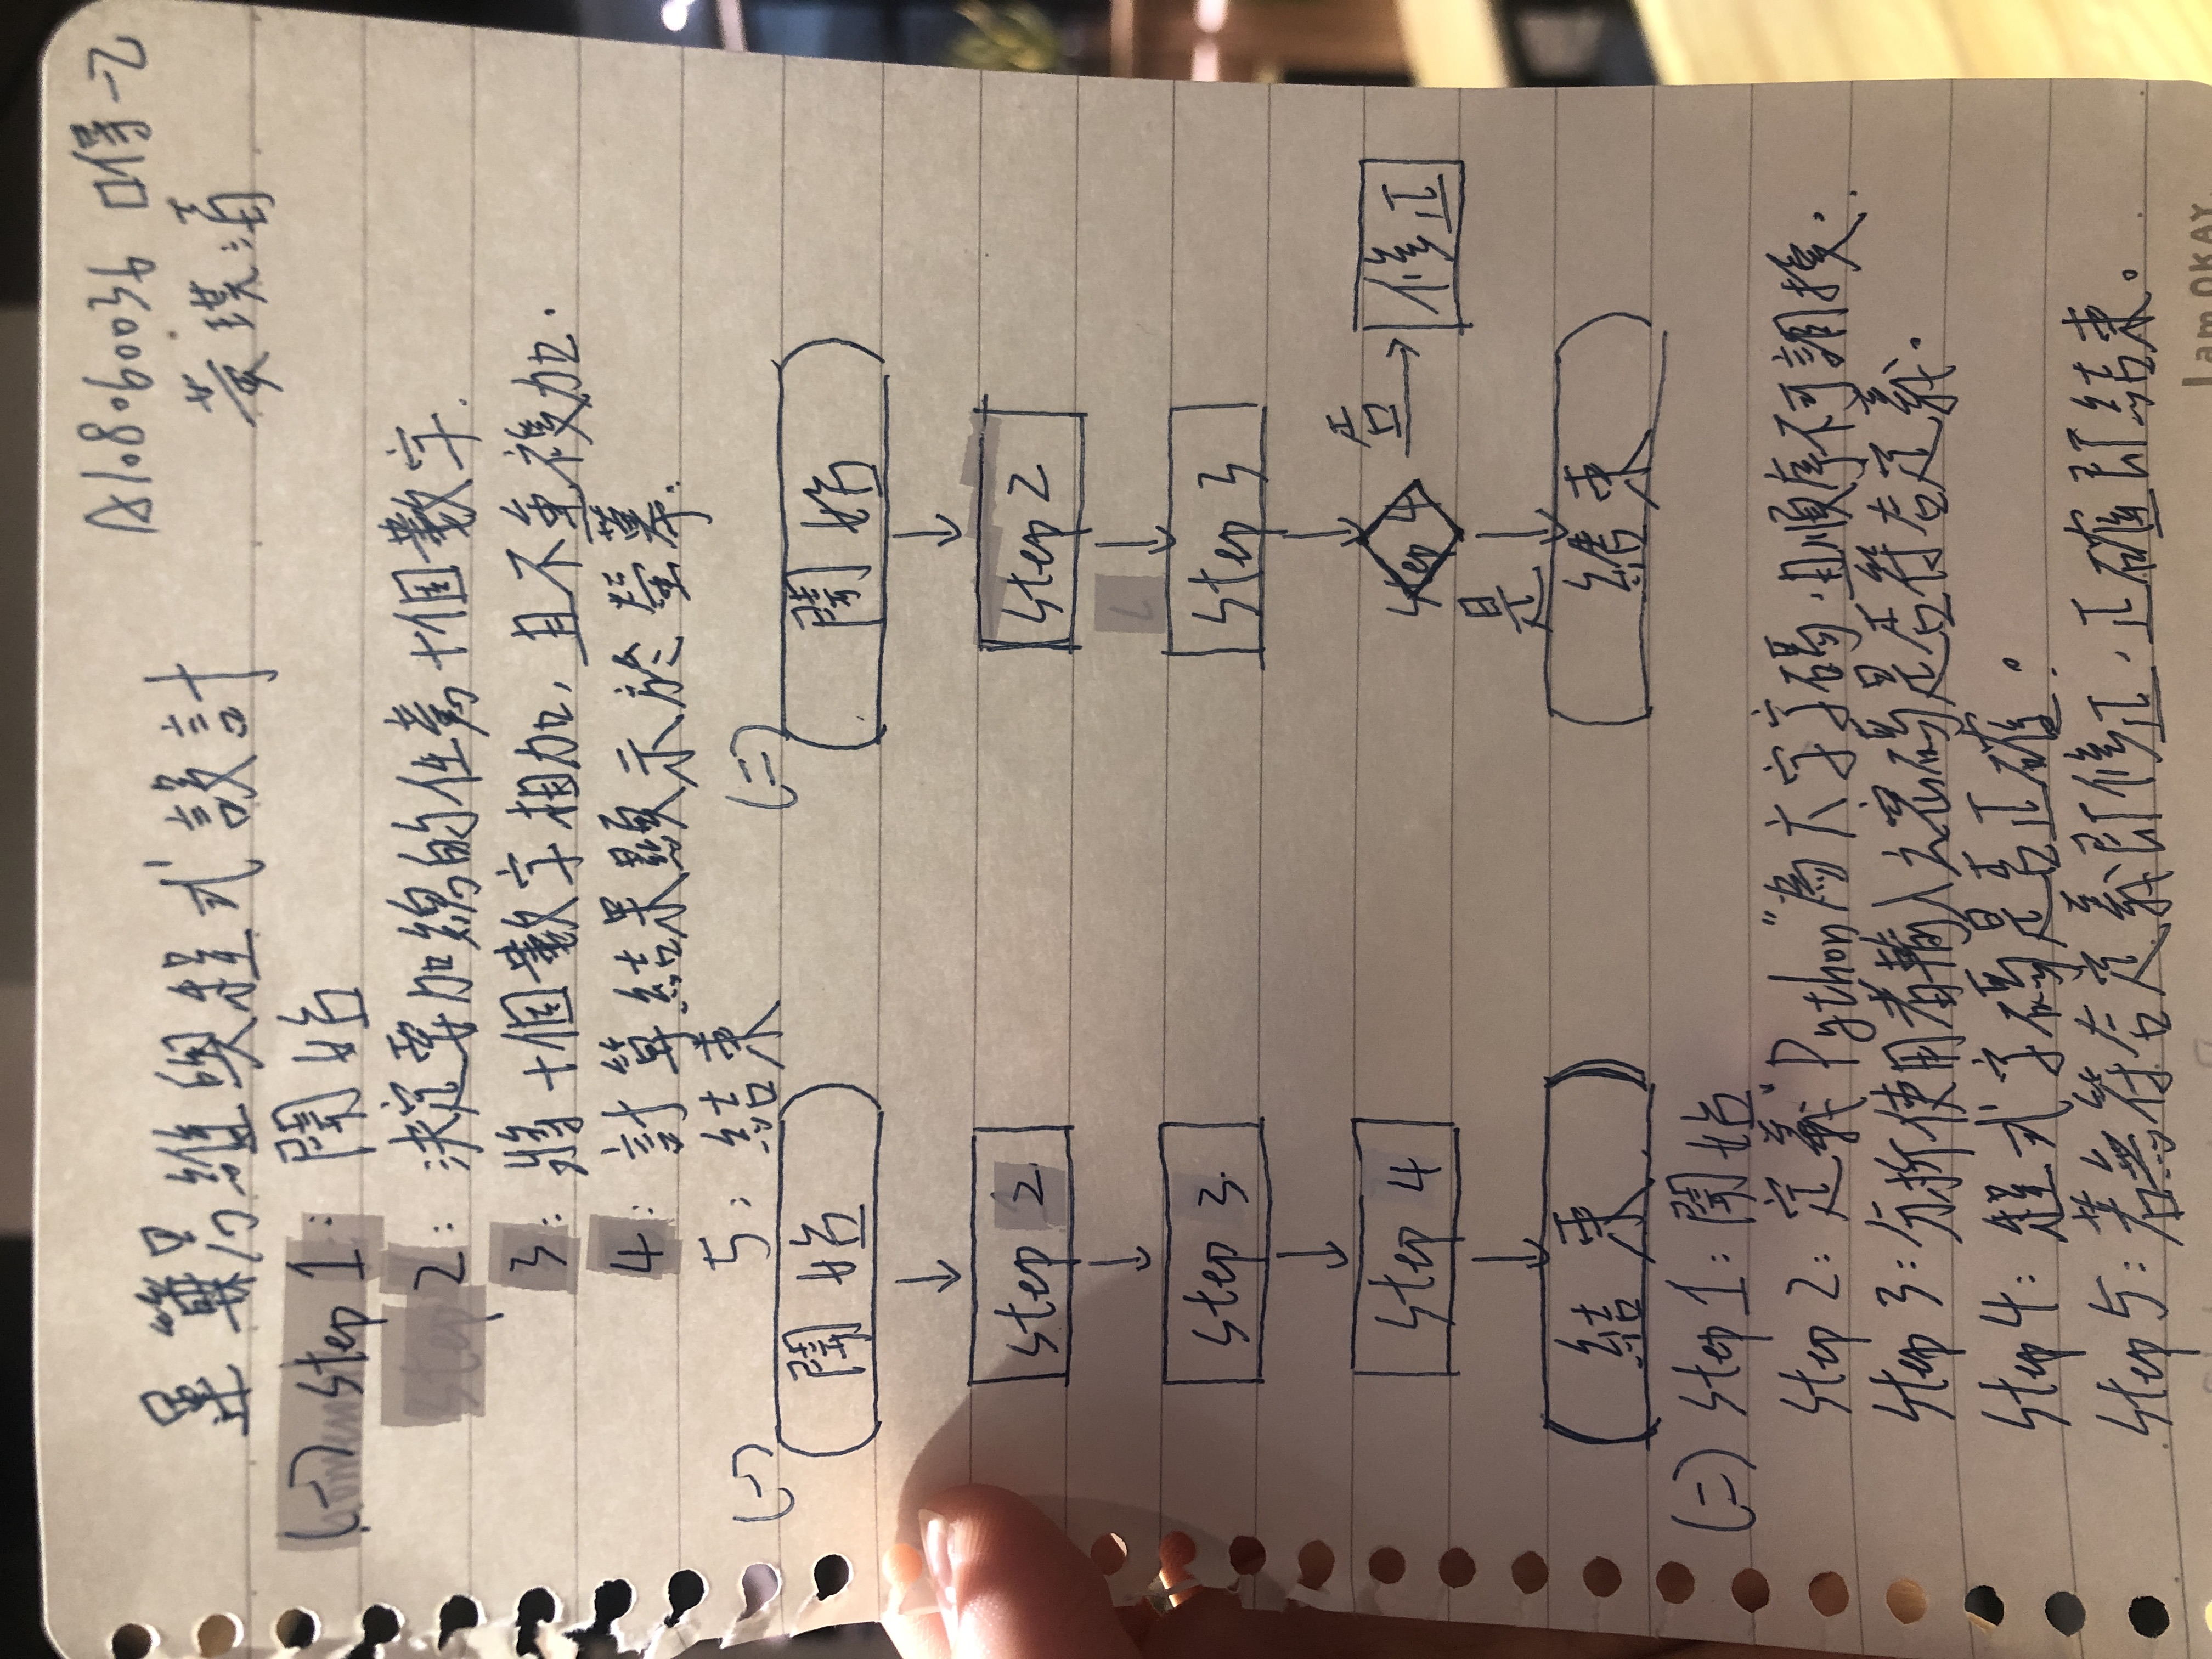 A108060036 口得一乙
運算思維與程式設計
黃璞淯
(一) step 1: 開始
2: 決定要加總的任意十個數字.
3: 將十個數字相加, 且不重複加.
4: 計算結果顯示於螢幕.
5: 結束
(一)
開始
step 2.
step 3.
step 4
結束
(二)
開始
step 2
step 3
step 4
否
修正
是
結束
(二) step 1: 開始
step 2: 定義"Python"為六字字碼,且順序不可調換.
step 3: 分析使用者輸入之密碼是否符合定義.
step 4: 程式字碼是否正確。
step 5: 若無符合定義即修正,正確即結束。
I am OKAY